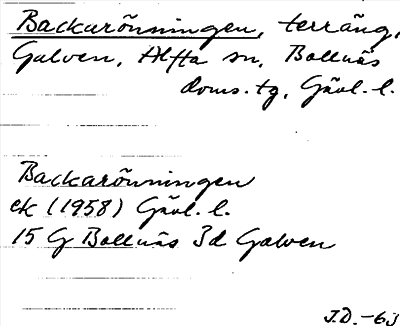 Backarönningen, terräng,
Galven, Alfta sn, Bollnäs
doms.tg, Gävl. l.
Backarönningen
ek (1958) Gävl. l.
15 G Bollnäs 3d Galven
J.D. -63